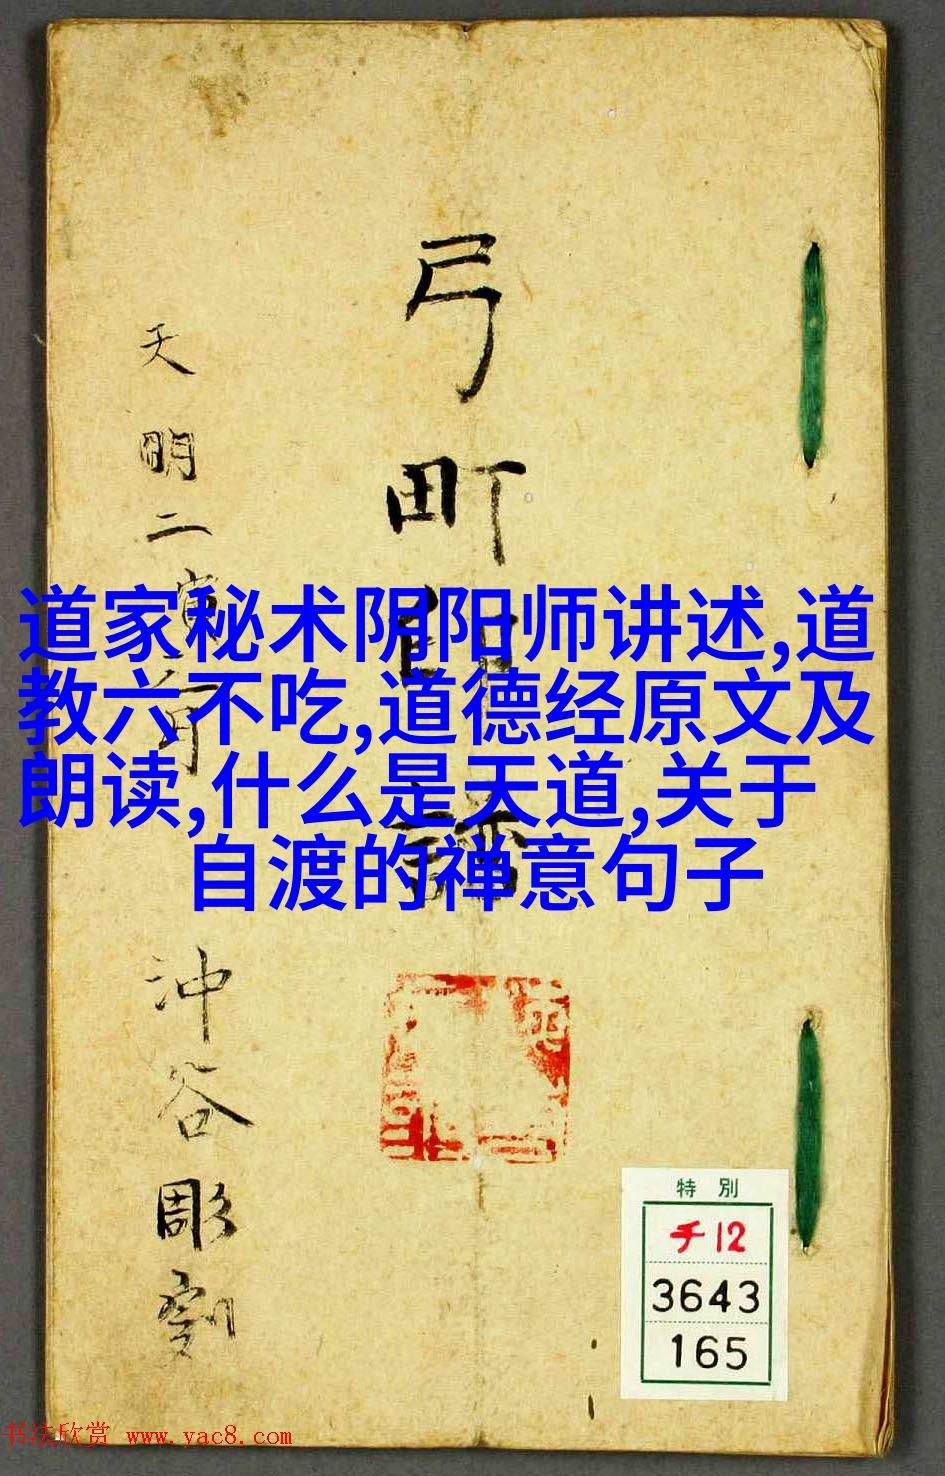 弓町
天明二寅
道家秘术阴阳师讲述,道
教六不吃,道德经原文及
朗读,什么是天道,关于
自渡的禅意句子
沖谷彫刻
特別
チ12
3643
165
书法欣赏 www.yac8.com